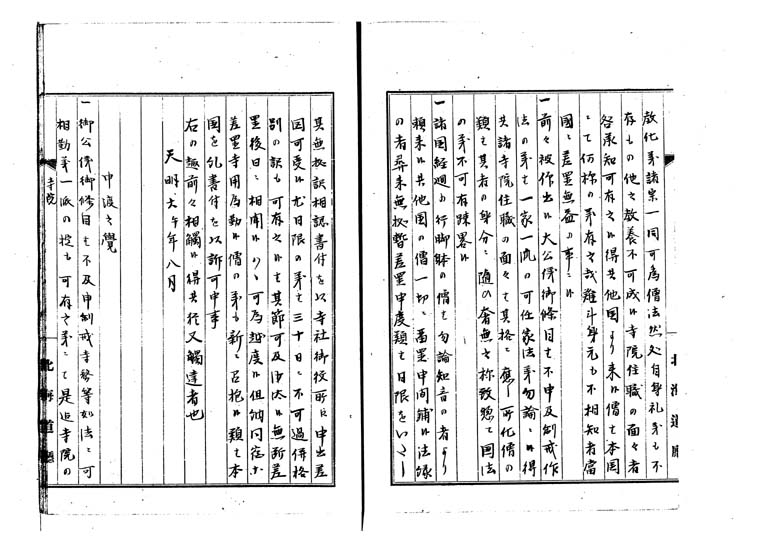 教化等諸宗一同可為僧法然処自身礼等も不
存もの他之教養不可成候寺院住職の面々者
各承知可有之候得共他国より来候僧も本国
ニて何様の等有之哉難斗身元も不相知者当
国ニ差置無益の事ニ候
一前々被仰出候大公儀御條目も不申及制戒作
法の等も一家一流の可任家法等勿論ニ候得
共諸寺院住職の面々も其格ニ応し所化僧の
類も其者の身分ニ随の奢無之様致惣て国法
の等不可有疎略候
一諸国経廻の行脚躰の僧も勿論知音の者より
頼来候共他国の僧一切ニ差置申間鋪候法縁
の者等来無拠暫差置申度類も日限をいたし
其無拠訳相認書付を以寺社御役所に申出差
図可受候尤日限の等も三十日ニ不可過併格
別の訳も可有之候ハ其節可及沙汰候無断差
置後日ニ相聞候ハヽ可為越度候但納所
差置寺用為勤候僧の等も新ニ召抱候類も本
国を糺書付を以訴可申事
右の趣前々相触候得共猶又触達者也
天明六午年八月
申渡之覚
一御公儀御條目も不及申制戒寺務等如法ニ可
相勤等一派の掟も可有之等ニて是迄寺院の
寺院
北海道廳
北海道廳